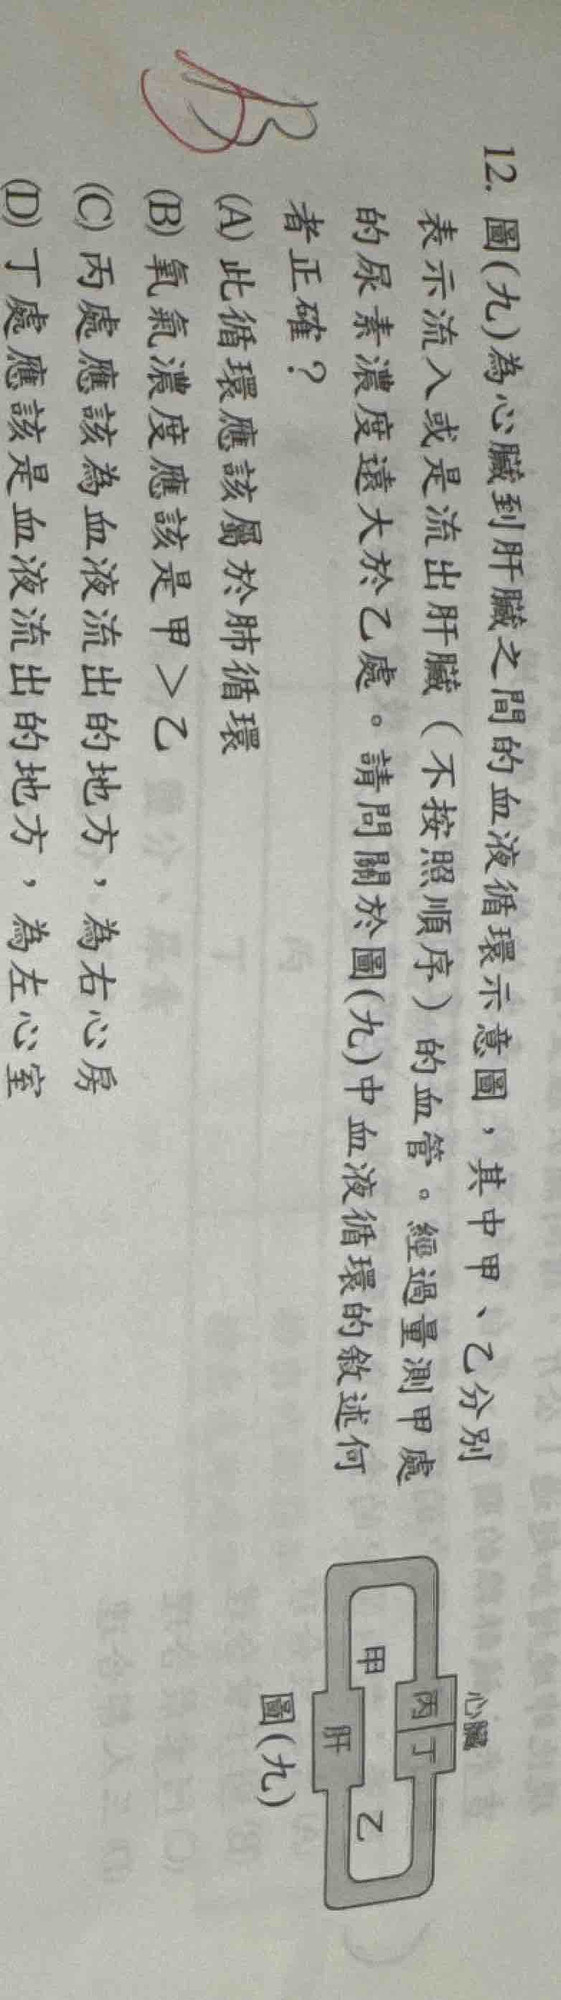 B
12. 圖(九)為心臟到肝臟之間的血液循環示意圖，其中甲、乙分別
表示流入或是流出肝臟（不按照順序）的血管。經過量測甲處
的尿素濃度遠大於乙處。請問關於圖(九)中血液循環的敘述何
者正確？
(A) 此循環應該屬於肺循環
(B) 氧氣濃度應該是甲＞乙
(C) 丙處應該為血液流出的地方，為右心房
(D) 丁處應該是血液流出的地方，為左心室
心臟
丙 丁
甲 乙
肝
圖(九)